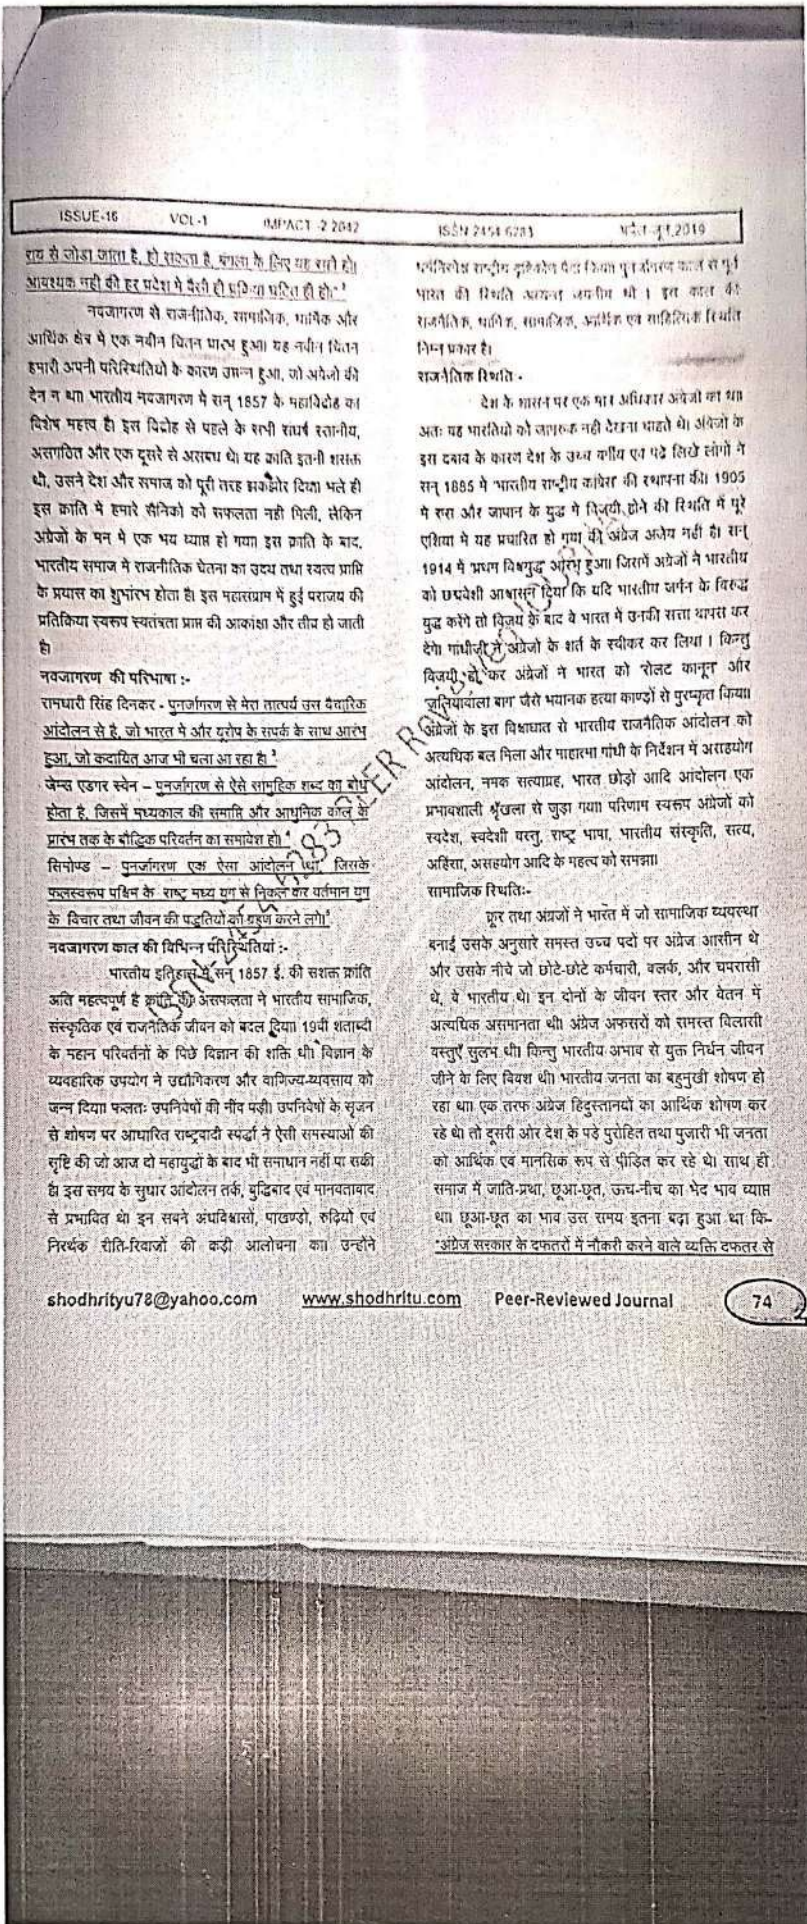 ISSUE-16 VOL-1 IMPACT -2 2642 ISSN 2454-6283 अप्रैल-जून,2019
राय से जोडा जाता है, हो सकता है, बंगला के लिए यह सही हो।
आवश्यक नही की हर प्रदेश मे वैसी ही प्रक्रिया घटित ही हो।"
नवजागरण से राजनीतिक, सामाजिक, धार्मिक और
आर्थिक क्षेत्र मे एक नवीन चिंतन प्रारंभ हुआ। यह नवीन चिंतन
हमारी अपनी परिस्थितियो के कारण उत्पन्न हुआ, जो अंग्रेजो की
देन न था। भारतीय नवजागरण मे सन् 1857 के महाविद्रोह का
विशेष महत्त्व है। इस विद्रोह से पहले के सभी संघर्ष स्तानीय,
असंगठित और एक दूसरे से असंबध थे। यह क्रांति इतनी शसक्त
थी, उसने देश और समाज को पूरी तरह झकझोर दिया। भले ही
इस क्रांति मे हमारे सैनिकों को सफलता नही मिली, लेकिन
अंग्रेजों के मन मे एक भय व्याप्त हो गया। इस क्रांति के बाद,
भारतीय समाज मे राजनीतिक चेतना का उदय तथा स्वत्व प्राप्ति
के प्रयास का शुभांरभ होता है। इस महासंग्राम में हुई पराजय की
प्रतिक्रिया स्वरूप स्वतंत्रता प्राप्त की आकांक्षा और तीव्र हो जाती
है।
नवजागरण की परिभाषा :-
रामधारी सिंह दिनकर - पुनर्जागरण से मेरा तात्पर्य उस वैचारिक
आंदोलन से है, जो भारत मे और यूरोप के संपर्क के साथ आरंभ
हुआ, जो कदायित आज भी चला आ रहा है। ³
जेम्स एडगर स्वेन – पुनर्जागरण से ऐसे सामुहिक शब्द का बोध
होता है, जिसमें मध्यकाल की समाप्ति और आधुनिक काल के
प्रारंभ तक के बौद्धिक परिवर्तन का समावेश हो। ⁴
सिमोण्ड – पुनर्जागरण एक ऐसा आंदोलन था, जिसके
फलस्वरूप पश्चिम के राष्ट्र मध्य युग से निकल कर वर्तमान युग
के विचार तथा जीवन की पद्धतियों को ग्रहण करने लगे।
नवजागरण काल की विभिन्न परिस्थितियां :-
भारतीय इतिहास में सन् 1857 ई. की सशक्त क्रांति
अति महत्वपूर्ण है क्रांति की असफलता ने भारतीय सामाजिक,
संस्कृतिक एवं राजनैतिक जीवन को बदल दिया। 19वी शताब्दी
के महान परिवर्तनों के पिछे विज्ञान की शक्ति थी। विज्ञान के
व्यवहारिक उपयोग ने उद्योगिकरण और वाणिज्य-व्यवसाय को
जन्न दिया। फलतः उपनिवेषों की नींव पड़ी। उपनिवेषों के सृजन
से शोषण पर आधारित राष्ट्रवादी स्पर्द्धा ने ऐसी समस्याओं की
सृष्टि की जो आज दो महायुद्धों के बाद भी समाधान नहीं पा सकी
है। इस समय के सुधार आंदोलन तर्क, बुद्धिबाद एवं मानवतावाद
से प्रभावित थे। इन सबने अंधविश्वासों, पाखण्डो, रुढ़ियों एवं
निरर्थक रीति-रिवाजों की कड़ी आलोचना का। उन्होंने
धर्मनिरपेक्ष राष्ट्रीय दृष्टिकोण पैदा किया। पुनर्जागरण काल से पूर्व
भारत की स्थिति अत्यन्त दयनीय थी । इस काल की
राजनैतिक, धार्मिक, सामाजिक, आर्थिक एवं साहित्यिक स्थिति
निम्न प्रकार है।
राजनैतिक स्थिति -
देश के शासन पर एक मात्र अधिकार अंग्रेजी का था।
अतः यह भारतियो को जागरुक नही देखना चाहते थे। अंग्रेजों के
इस दबाव के कारण देश के उच्च वर्गीय एवं पढे लिखे लोगों ने
सन् 1885 मे 'भारतीय राष्ट्रीय कांग्रेस' की स्थापना की। 1905
मे रुस और जापान के युद्ध मे विजयी होने की स्थिति में पूरे
एशिया मे यह प्रचारित हो गया की अंग्रेज अजेय नही है। सन्
1914 में 'प्रथम विश्वयुद्ध' आरंभ हुआ। जिसमें अंग्रेजों ने भारतीय
को छद्मवेशी आश्वासन दिया कि यदि भारतीय जर्मन के विरुद्ध
युद्ध करेंगे तो विजय के बाद वे भारत में उनकी सत्ता वापस कर
देंगे। गांधीजी ने अंग्रेजो के शर्त के स्वीकर कर लिया । किन्तु
विजयी हो कर अंग्रेजों ने भारत को 'रोलट कानून' और
'जलियांवाला बाग' जैसे भयानक हत्या काण्ड़ों से पुरष्कृत किया।
अंग्रेजों के इस विश्वाघात से भारतीय राजनैतिक आंदोलन को
अत्यधिक बल मिला और माहात्मा गांधी के निर्देशन में असहयोग
आंदोलन, नमक सत्याग्रह, भारत छोड़ो आदि आंदोलन एक
प्रभावशाली श्रृंखला से जुड़ा गया। परिणाम स्वरूप अंग्रेजों को
स्वदेश, स्वदेशी वस्तु, राष्ट्र भाषा, भारतीय संस्कृति, सत्य,
अहिंसा, असहयोग आदि के महत्व को समझा।
सामाजिक स्थितिः-
क्रूर तथा अंग्रजों ने भारत में जो सामाजिक व्यवस्था
बनाई उसके अनुसारे समस्त उच्च पदों पर अंग्रेज आसीन थे
और उसके नीचे जो छोटे-छोटे कर्मचारी, क्लर्क, और चपरासी
थे, वे भारतीय थे। इन दोनों के जीवन स्तर और वेतन में
अत्यधिक असमानता थी। अंग्रेज अफसरों को समस्त विलासी
वस्तुएँ सुलभ थी। किन्तु भारतीय अभाव से युक्त निर्धन जीवन
जीने के लिए विवश थी। भारतीय जनता का बहुमुखी शोषण हो
रहा था। एक तरफ अंग्रेज हिंदुस्तानयों का आर्थिक शोषण कर
रहे थे। तो दूसरी ओर देश के पड़े पुरोहित तथा पुजारी भी जनता
को आर्थिक एवं मानसिक रूप से पीड़ित कर रहे थे। साथ ही
समाज में जाति-प्रथा, छूआ-छूत, ऊच-नीच का भेद भाव व्याप्त
था। छूआ-छूत का भाव उस समय इतना बढ़ा हुआ था कि-
"अंग्रेज सरकार के दफतरों में नौकरी करने वाले व्यक्ति दफतर से
shodhrityu78@yahoo.com www.shodhritu.com Peer-Reviewed Journal 74